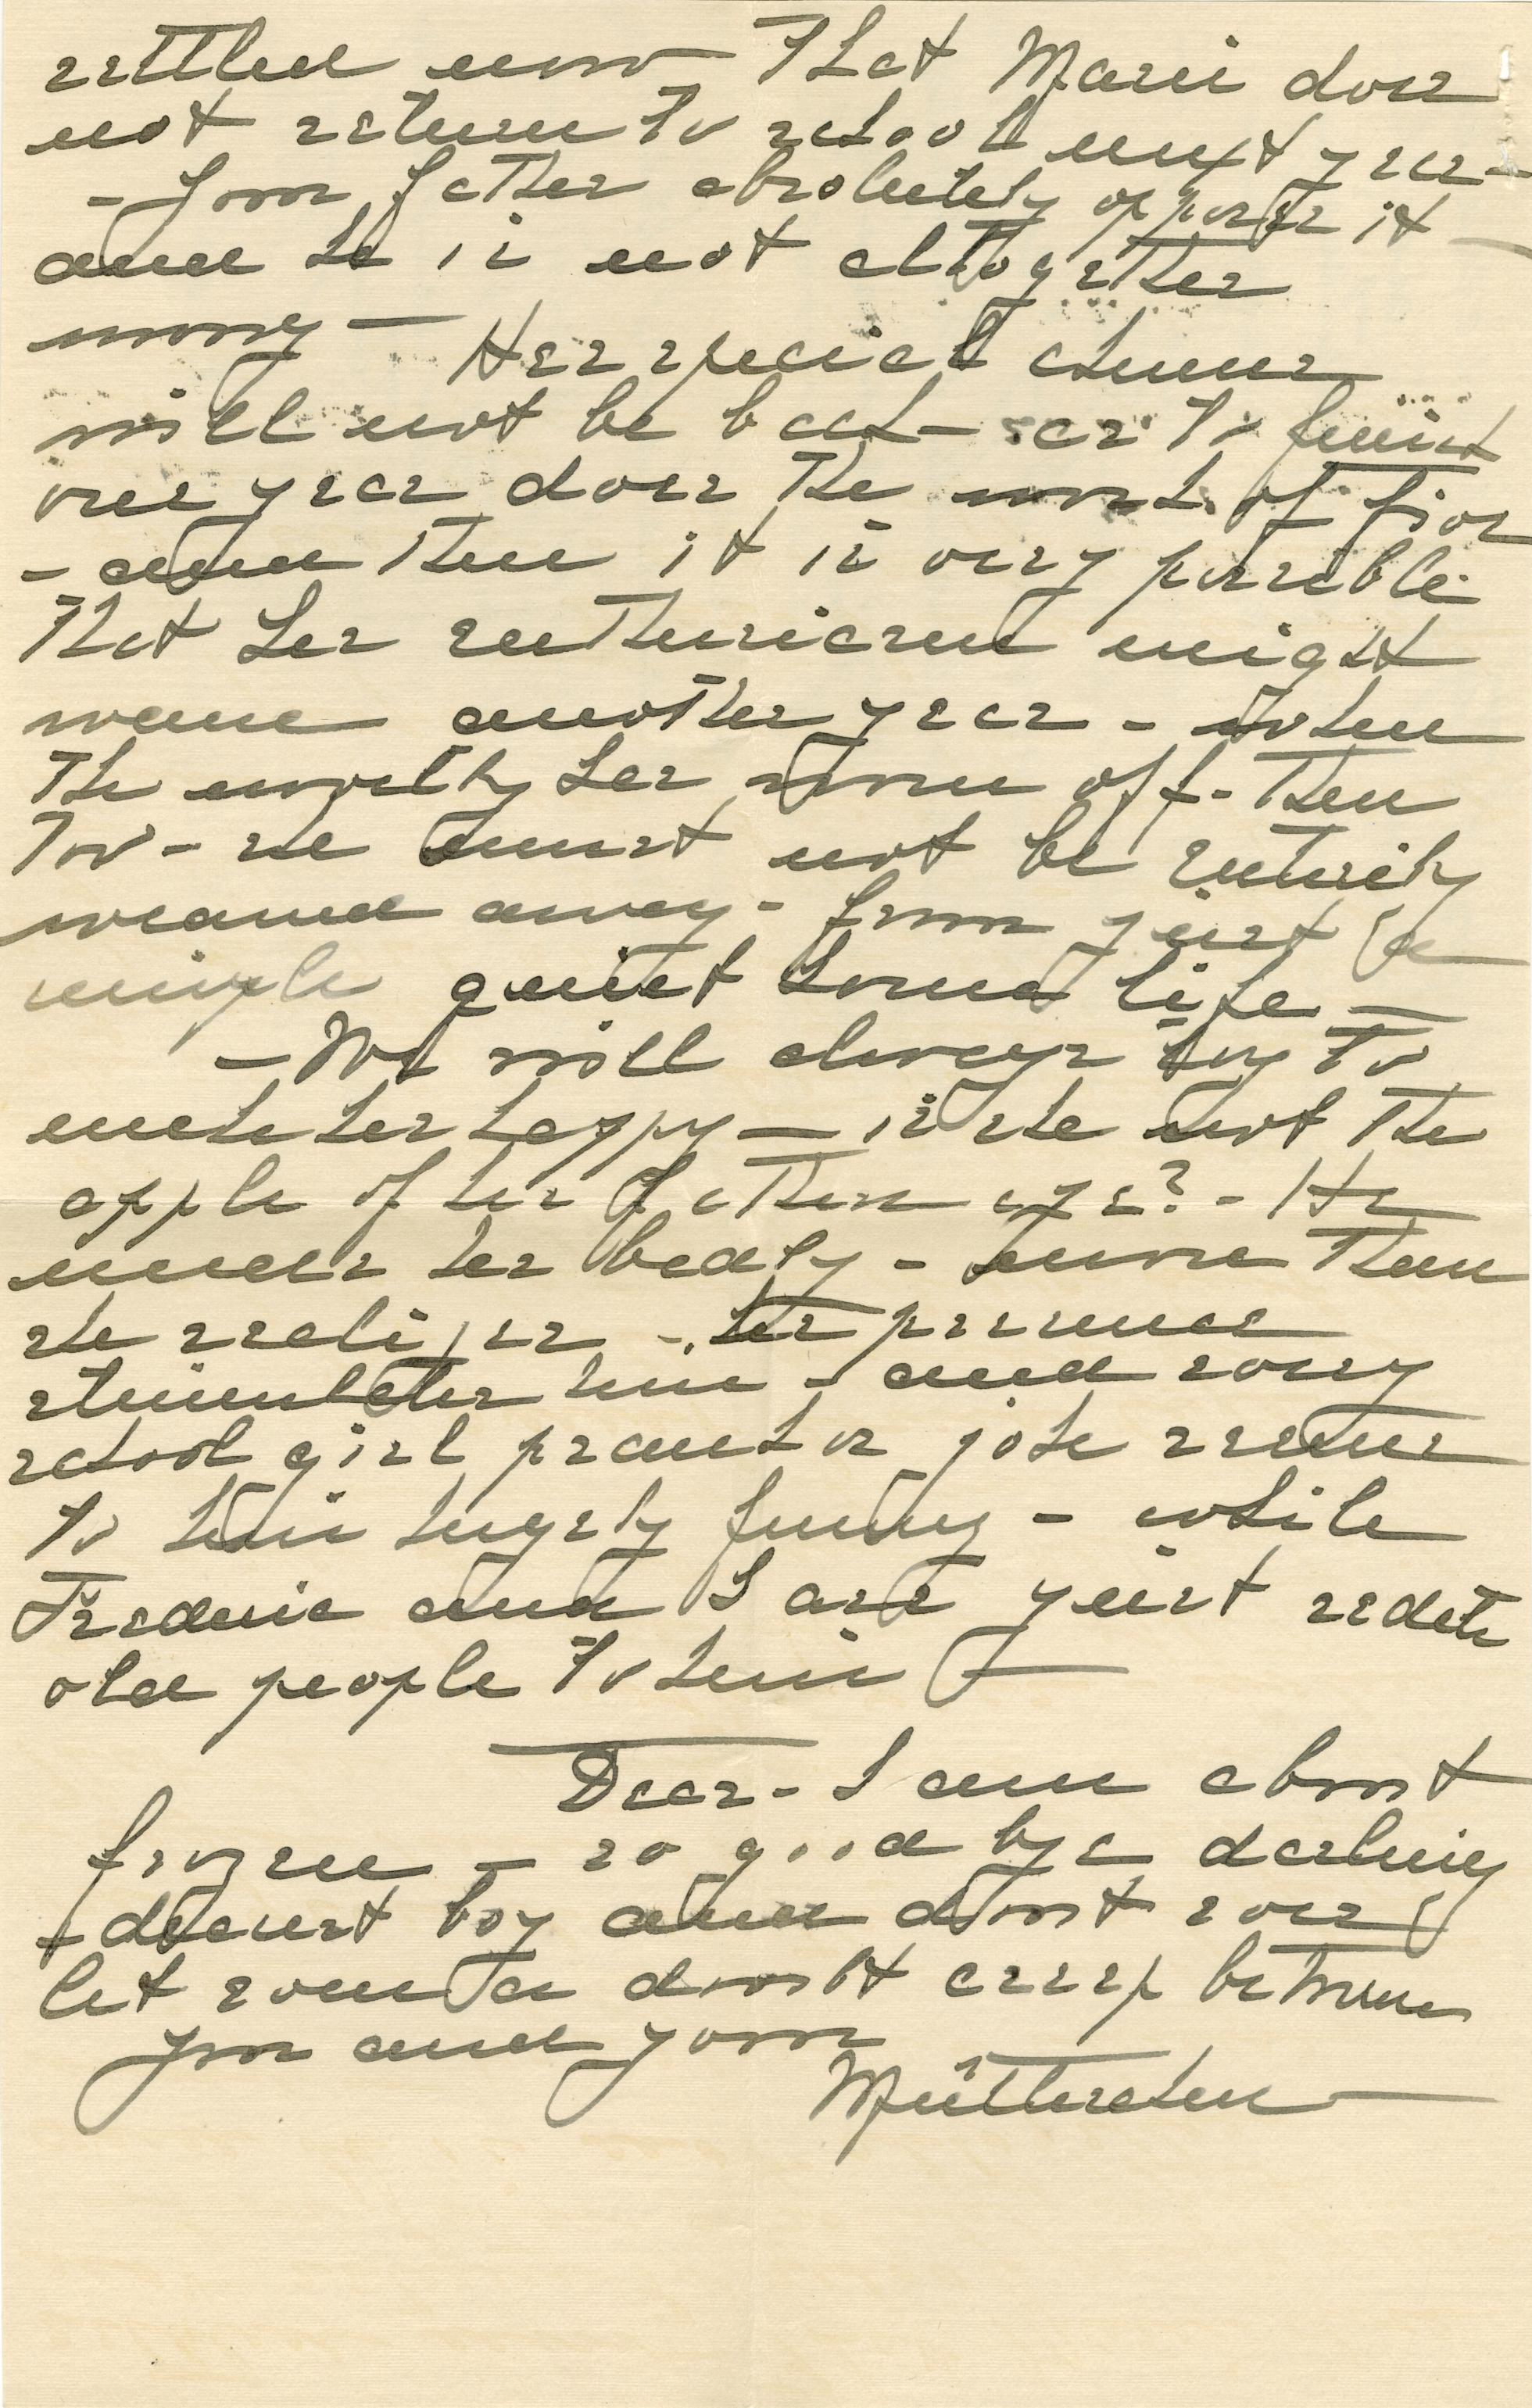 settled now that Marie does
not return to school next year -
- Your father absolutely opposes it -
and he is not altogether
wrong - Her special chums
will not be back - as to finish
one year does the work of two
- and then it is very possible
that her enthusiasm might
wane another year - when
the novelty has worn off - then
too - she must not be entirely
weaned away - from just a
simple quiet home life -
- We will always try to
make her happy - is she not the
apple of her fathers eye? - He
needs her badly - more than
she realizes - her presence
stimulates him - and every
school girl prank or joke seems
to him hugely funny - while
Frederic and I are just sedate
old people to him -
Dear - I am almost
frozen - so good bye darling
- dearest boy and dont ever
let even a doubt creep between
you and your
Mütterchen